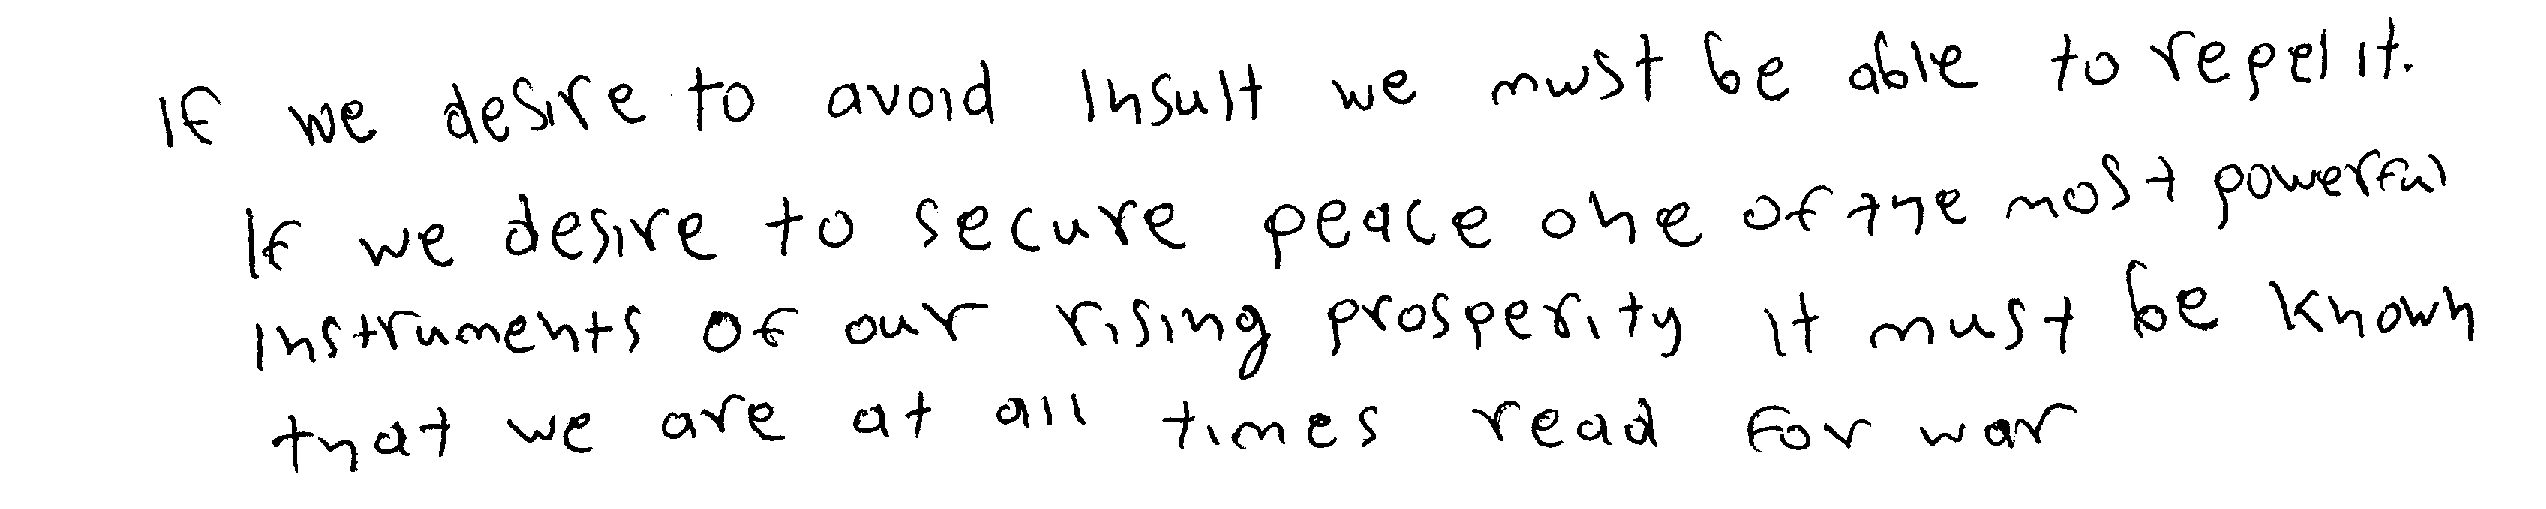 If we desire to avoid insult we must be able to repel it.
If we desire to secure peace one of the most powerful
instruments of our rising prosperity it must be known
that we are at all times read for war